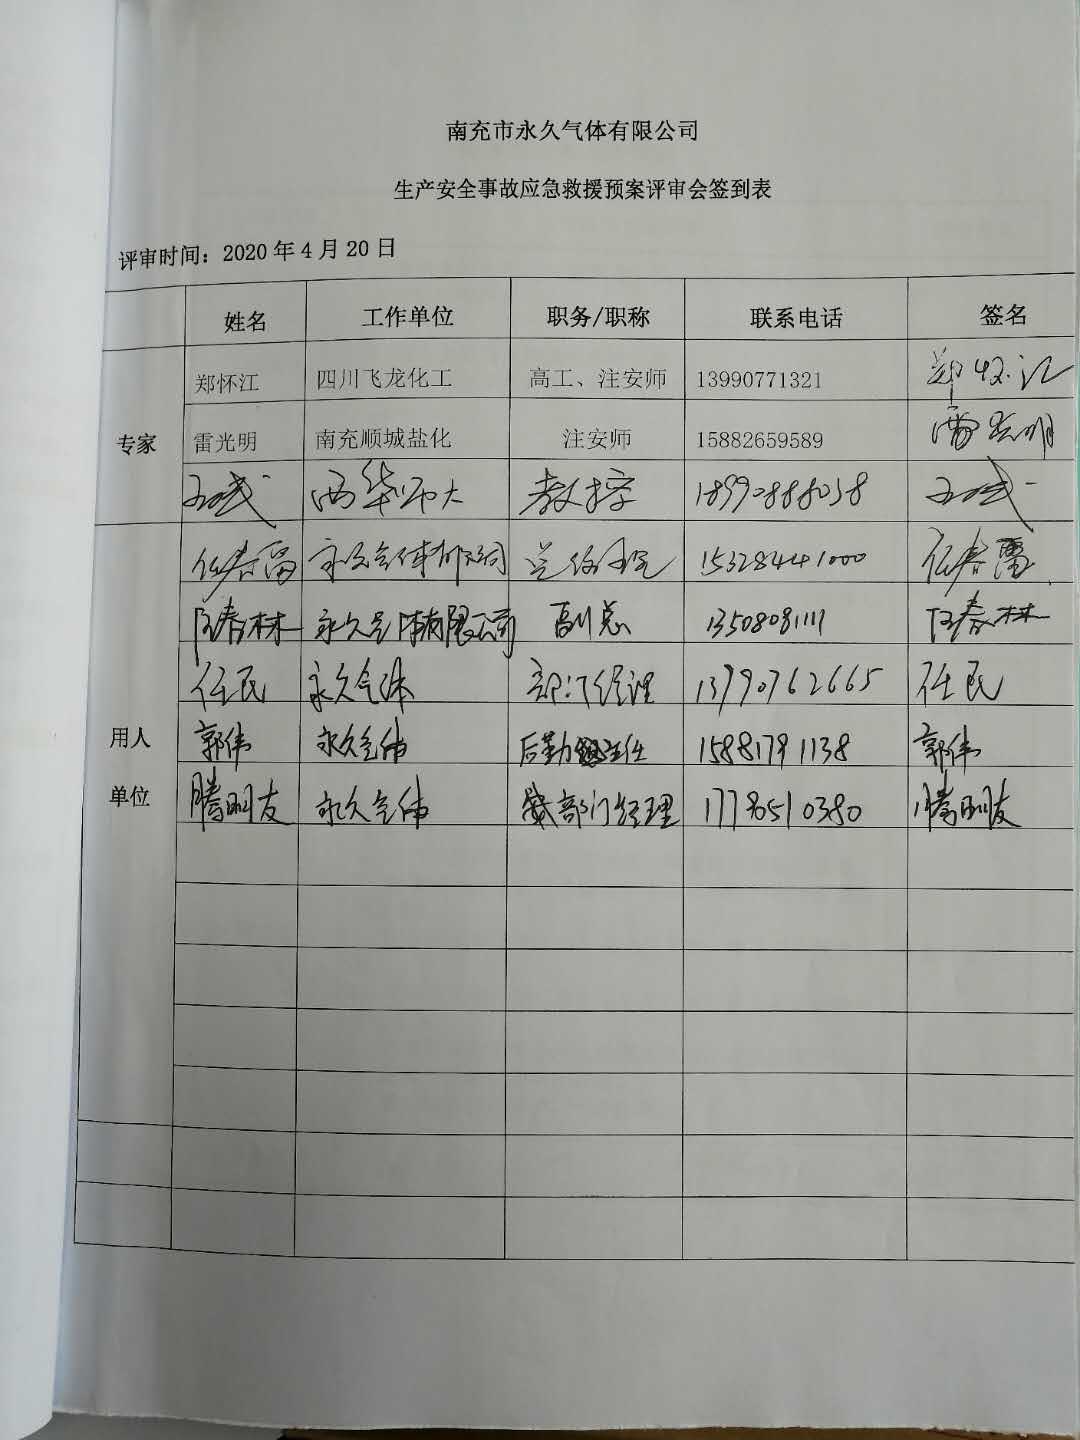 南充市永久气体有限公司
生产安全事故应急救援预案评审会签到表
评审时间：2020 年 4 月 20 日
姓名 工作单位 职务/职称 联系电话 签名
专家
郑怀江 四川飞龙化工 高工、注安师 13990771321
雷光明 南充顺城盐化 注安师 15882659589 雷光明
西华师大 教授 18990888038
用人
单位
任春雷 永久气体有限公司 总经理 15328441000 任春雷
春林 永久气体有限公司 副总 13508081111 春林
任民 永久气体 部门经理 13990762665 任民
郭伟 永久气体 后勤主任 15881791138 郭伟
腾明友 永久气体 部门经理 17785510380 腾明友